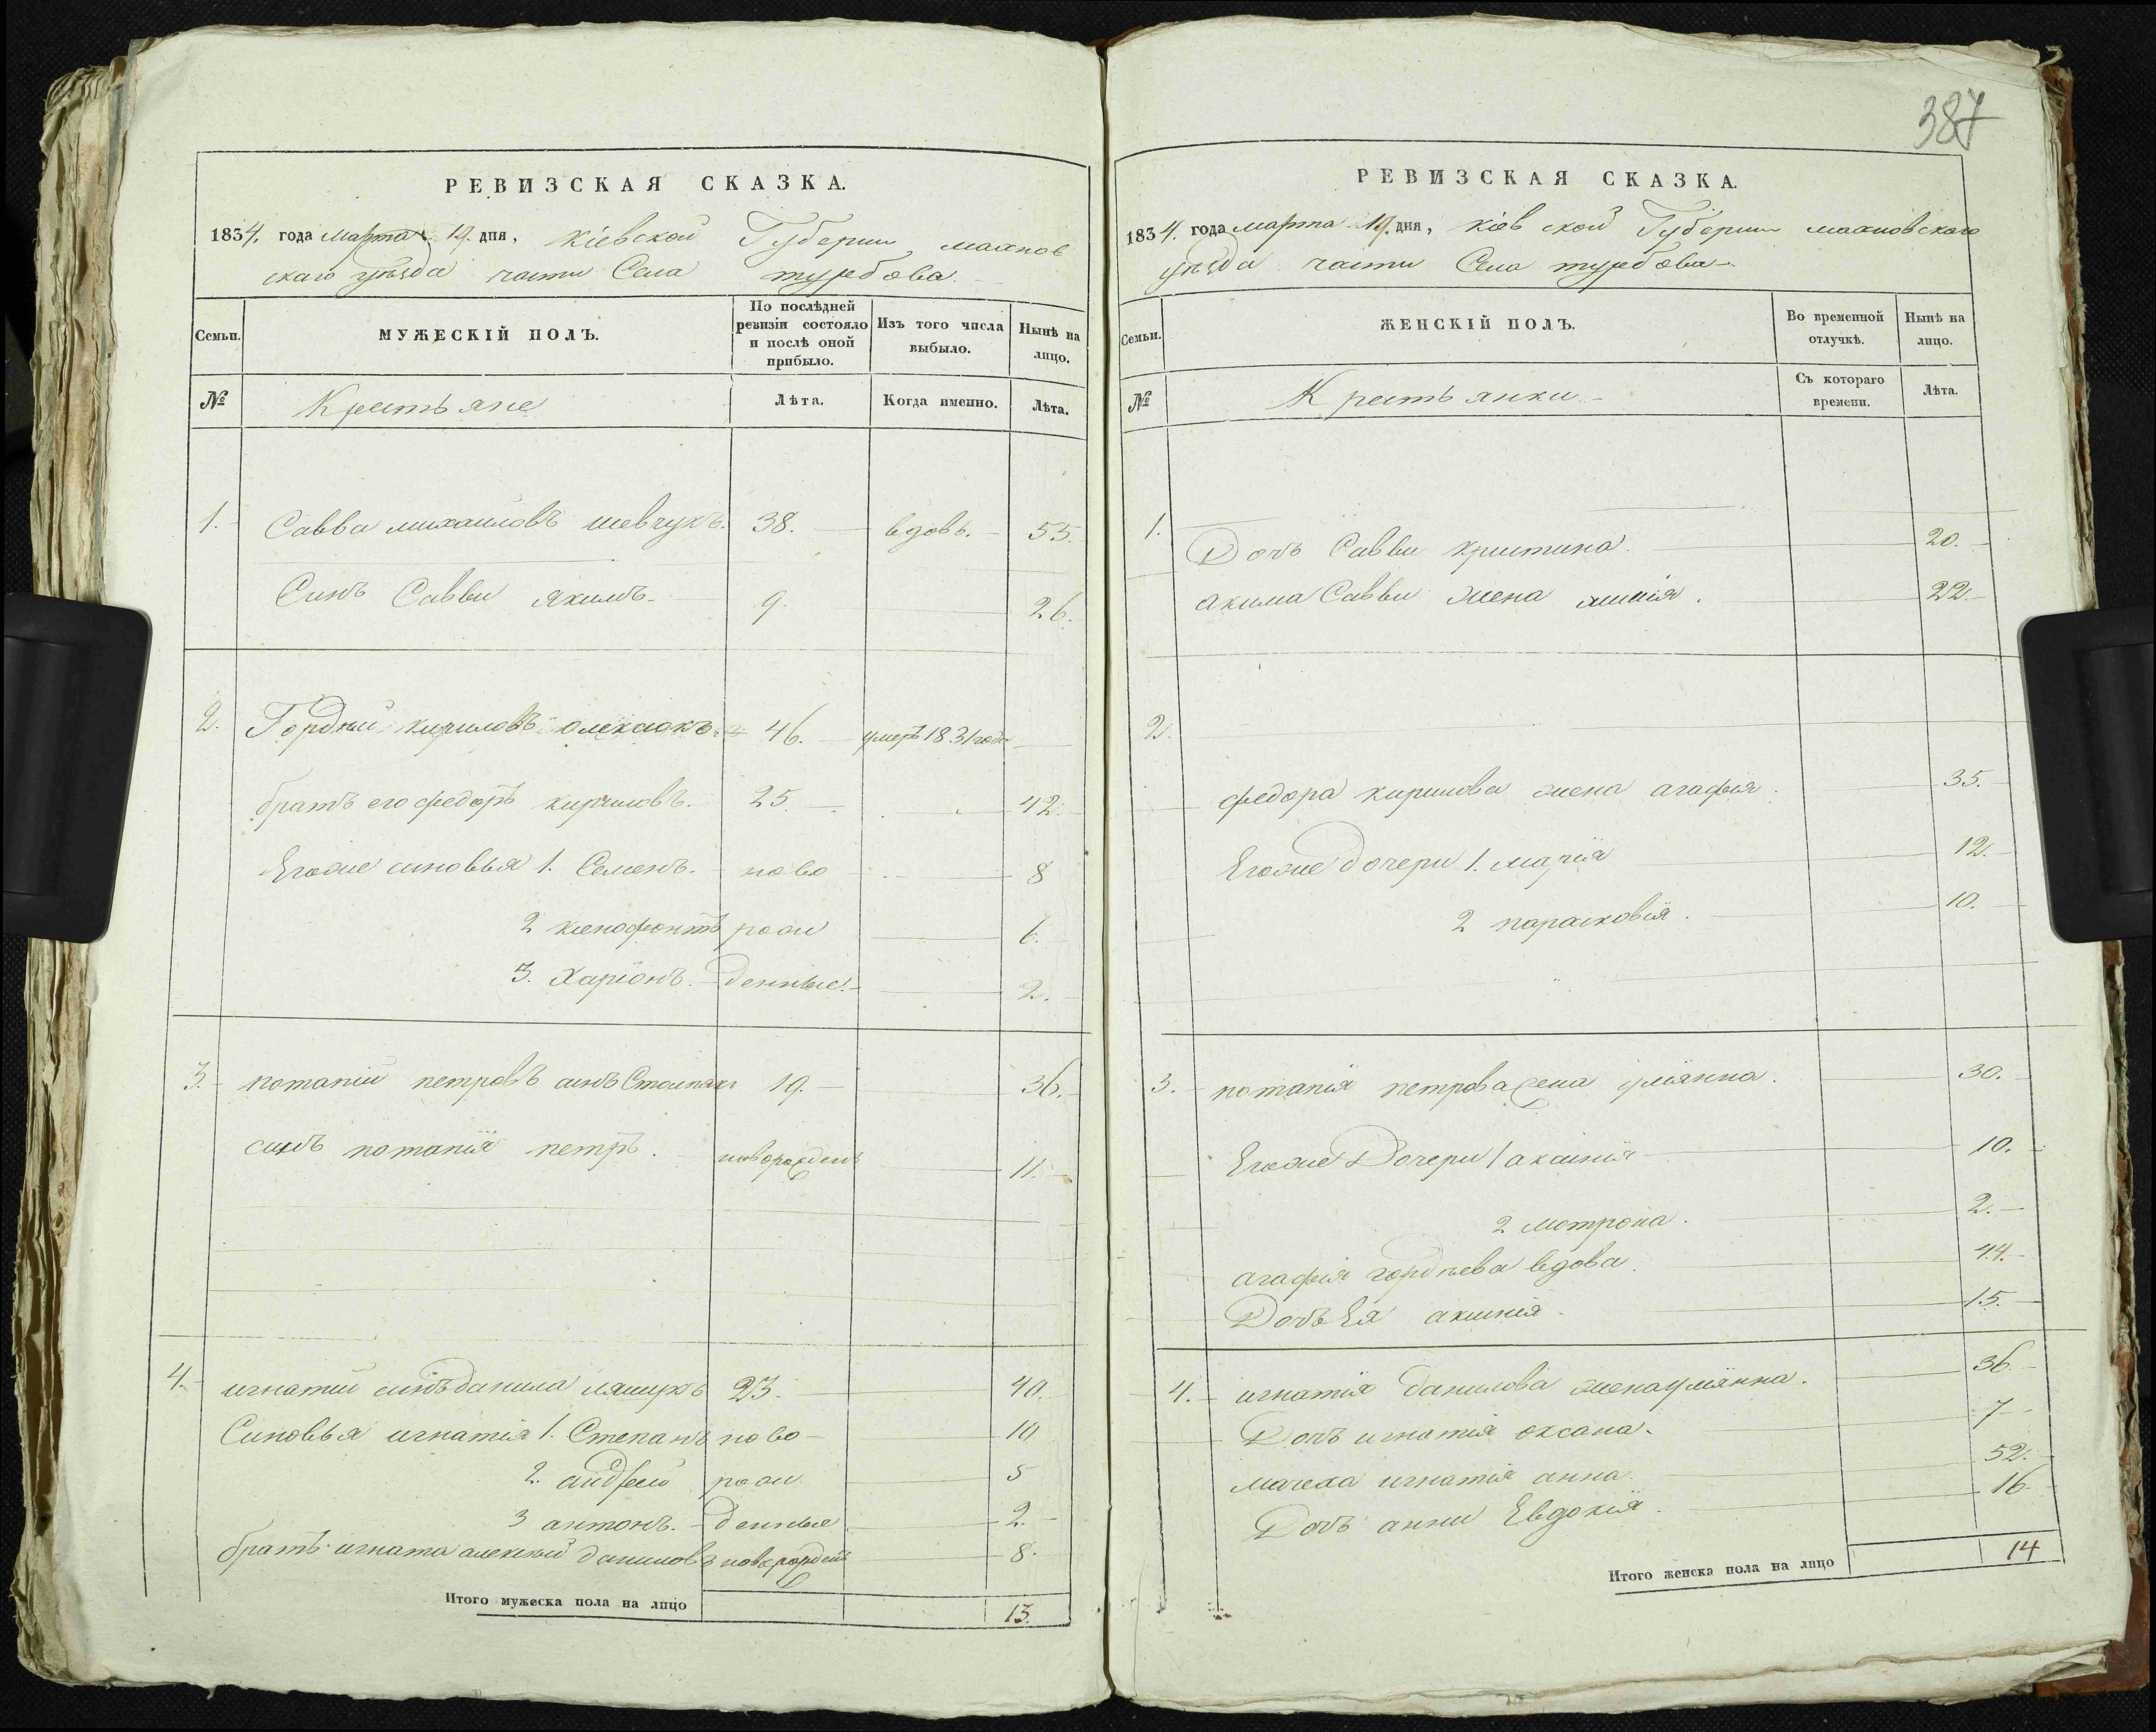 РЕВИЗСКАЯ СКАЗКА.
1834. года марта 19. дня, Кіевской Губерніи махнов
скаго уѣзда части Села турбова.
Семьи.
МУЖЕСКІЙ ПОЛЪ.
По послѣдней ревизіи состояло и послѣ оной прибыло.
Изъ того числа выбыло.
Нынѣ на лицо.
№
Крестьяне
Лѣта.
Когда именно.
Лѣта.
1. Савва михаиловъ шевчукъ. 38. вдовъ. 55.
Синъ Савви якимъ 9. 26.
2. Гордѣй кириловъ олексюкъ 46. умеръ 1831 года
братъ его федоръ кириловъ. 25. 42.
Егоже синовья 1. Семенъ. ново 8
2 ксенофонтъ рож 6.
3. Харіонъ. денные. 2.
3. потапій петровъ синъ 19. 36.
синъ потапія петръ. новорожденъ 11.
4. игнатій синъ данила 23. 40.
Синовья игнатія 1. Степанъ ново 10
2. андрей рож 5
3 антонъ. денные 2.
братъ игната алексѣй даниловъ новорожден 8.
Итого мужеска пола на лицо 13.
387
РЕВИЗСКАЯ СКАЗКА.
1834. года марта 19. дня, Кіевской Губерніи махновскаго
уѣзда части Села турбова
Семьи.
ЖЕНСКІЙ ПОЛЪ.
Во временной отлучкѣ.
Нынѣ на лицо.
№
Крестьянки
Съ котораго времени.
Лѣта.
1.
Дочь Савви христина. 20.
акима Савви жена 22.
2.
федора кирилова жена агафія. 35.
Егоже дочери 1. марія 12.
2 парасковія. 10.
3. потапія петрова жена уліянна. 30.
Егоже Дочери 1 аксинія 10.
2 мотрона. 2.
агафія гордѣева вдова. 44.
Дочь Ея аксинія 15.
4. игнатія данилова жена уліянна. 36.
Дочь игнатія оксана. 7
мачеха игнатія анна. 52.
Дочь анни Евдокія. 16.
Итого женска пола на лицо 14